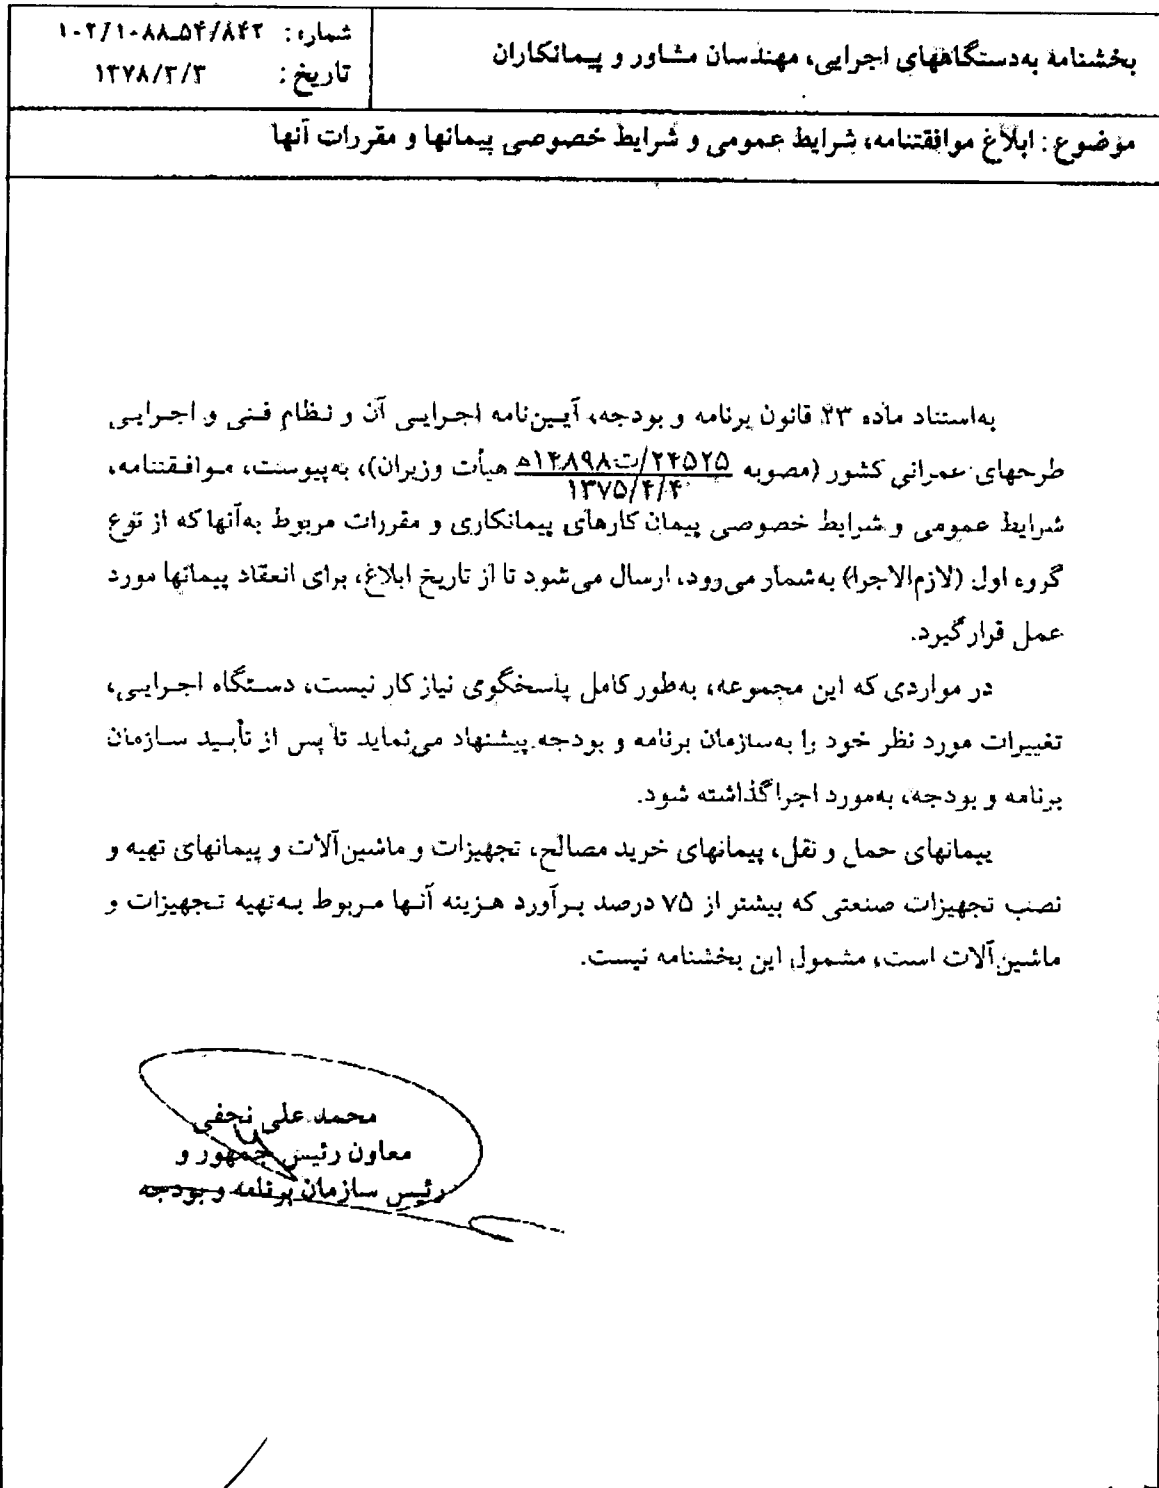 بخشنامهٔ به‌دستگاههای اجرایی، مهندسان مشاور و پیمانکاران
شماره: ۱۰۲/۱۰۸۸ـ۵۴/۸۴۲
تاریخ: ۱۳۷۸/۳/۳
موضوع: ابلاغ موافقتنامه، شرایط عمومی و شرایط خصوصی پیمانها و مقررات آنها
به‌استناد ماده ۲۳ قانون برنامه و بودجه، آیین‌نامه اجرایی آن و نظام فنی و اجرایی
طرحهای عمرانی کشور (مصوبه ۲۴۵۲۵/ت۱۴۸۹۸ه هیأت وزیران)، به‌پیوست، موافقتنامه،
۱۳۷۵/۴/۴
شرایط عمومی و شرایط خصوصی پیمان کارهای پیمانکاری و مقررات مربوط به‌آنها که از نوع
گروه اول (لازم‌الاجرا) به‌شمار می‌رود، ارسال می‌شود تا از تاریخ ابلاغ، برای انعقاد پیمانها مورد
عمل قرار گیرد.
در مواردی که این مجموعه، به‌طور کامل پاسخگوی نیاز کار نیست، دستگاه اجرایی،
تغییرات مورد نظر خود را به‌سازمان برنامه و بودجه پیشنهاد می‌نماید تا پس از تأیید سازمان
برنامه و بودجه، به‌مورد اجرا گذاشته شود.
پیمانهای حمل و نقل، پیمانهای خرید مصالح، تجهیزات و ماشین‌آلات و پیمانهای تهیه و
نصب تجهیزات صنعتی که بیشتر از ۷۵ درصد برآورد هزینه آنها مربوط به‌تهیه تجهیزات و
ماشین‌آلات است، مشمول این بخشنامه نیست.
محمد علی نجفی
معاون رئیس جمهور و
رئیس سازمان برنامه و بودجه